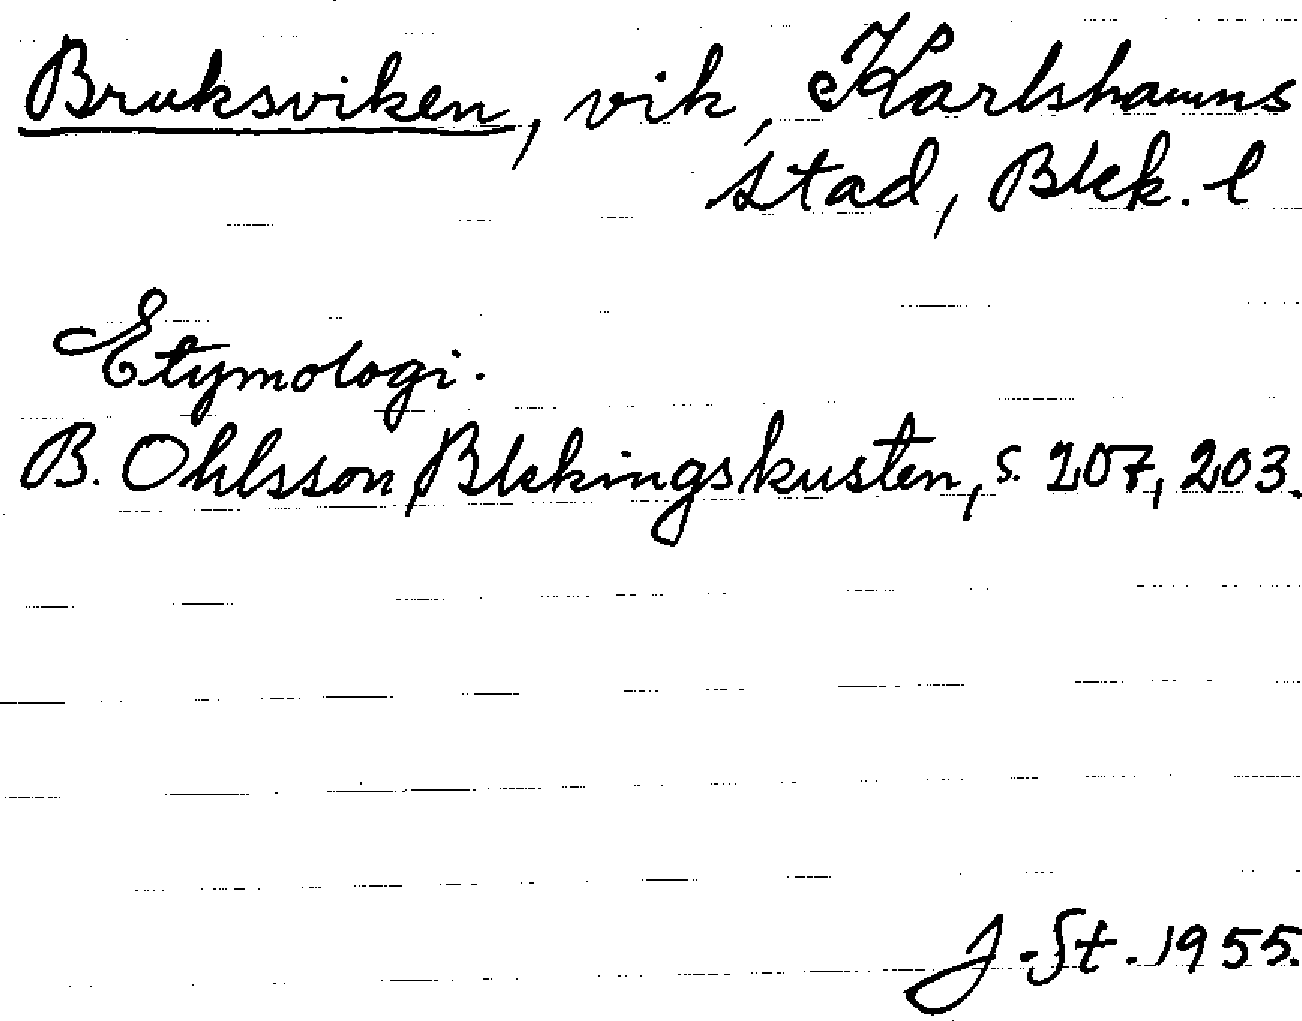 Bruksviken, vik, Karlshamns
stad, Blek. l
Etymologi.
B. Ohlsson, Blekingskusten, s. 207, 203.
J. St. 1955.